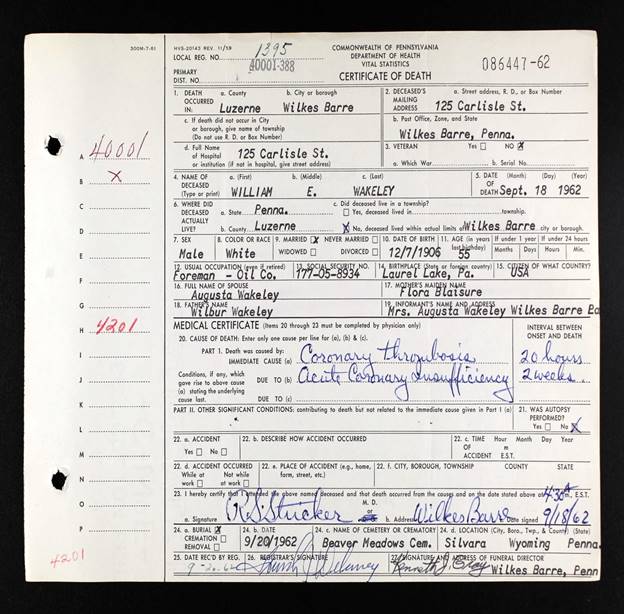 300M-7-61
HVS-20143 REV. 11/59
LOCAL REG. NO. 1395
COMMONWEALTH OF PENNSYLVANIA
DEPARTMENT OF HEALTH
VITAL STATISTICS
086447-62
PRIMARY DIST. NO. 40001-388
CERTIFICATE OF DEATH
1. DEATH OCCURRED IN: a. County Luzerne b. City or borough Wilkes Barre
2. DECEASED'S MAILING ADDRESS a. Street address, R. D., or Box Number 125 Carlisle St.
c. If death did not occur in City or borough, give name of township (Do not use R. D. or Box Number)
b. Post Office, Zone, and State Wilkes Barre, Penna.
d. Full Name of Hospital or institution (if not in hospital, give street address) 125 Carlisle St.
3. VETERAN Yes No X
a. Which War b. Serial No.
4. NAME OF DECEASED (Type or print) a. (First) WILLIAM b. (Middle) E. c. (Last) WAKELEY
5. DATE OF DEATH (Month) (Day) (Year) Sept. 18 1962
6. WHERE DID DECEASED ACTUALLY LIVE? a. State Penna. b. County Luzerne
c. Did deceased live in a township? Yes, deceased lived in township.
X No, deceased lived within actual limits of Wilkes Barre city or borough.
7. SEX Male
8. COLOR OR RACE White
9. MARRIED X NEVER MARRIED WIDOWED DIVORCED
10. DATE OF BIRTH 12/7/1906
11. AGE (in years last birthday) 55
If under 1 year Months Days
If under 24 hours Hours Min.
12. USUAL OCCUPATION (even if retired) Foreman - Oil Co.
13. SOCIAL SECURITY NO. 177-05-8934
14. BIRTHPLACE (State or foreign country) Laurel Lake, Pa.
15. CITIZEN OF WHAT COUNTRY? USA
16. FULL NAME OF SPOUSE Augusta Wakeley
17. MOTHER'S MAIDEN NAME Flora Blaisure
18. FATHER'S NAME Wilbur Wakeley
19. INFORMANT'S NAME AND ADDRESS Mrs. Augusta Wakeley Wilkes Barre Pa
MEDICAL CERTIFICATE (Items 20 through 23 must be completed by physician only)
INTERVAL BETWEEN ONSET AND DEATH
20. CAUSE OF DEATH: Enter only one cause per line for (a), (b), & (c).
PART 1. Death was caused by: IMMEDIATE CAUSE (a) Coronary thrombosis 20 hours
Conditions, if any, which gave rise to above cause (a) stating the underlying cause last. DUE TO (b) Acute Coronary Insufficiency 2 weeks
DUE TO (c)
PART II. OTHER SIGNIFICANT CONDITIONS: contributing to death but not related to the immediate cause given in Part I (a)
21. WAS AUTOPSY PERFORMED? Yes No X
22. a. ACCIDENT Yes No
22. b. DESCRIBE HOW ACCIDENT OCCURRED
22. c. TIME OF ACCIDENT Hour Month Day Year m E.S.T.
22. d. ACCIDENT OCCURRED While at work Not while at work
22. e. PLACE OF ACCIDENT (e.g., home, farm, street, etc.)
22. f. CITY, BOROUGH, TOWNSHIP COUNTY STATE
23. I hereby certify that I attended the above named deceased and that death occurred from the causes and on the date stated above at 4:30 A m, E.S.T.
a. Signature R. S. Stucker M. D. b. Address Wilkes Barre Date signed 9/18/62
24. a. BURIAL X CREMATION REMOVAL
24. b. DATE 9/20/1962
24. c. NAME OF CEMETERY OR CREMATORY Beaver Meadows Cem.
24. d. LOCATION (City, Boro., Twp., & County) (State) Silvara Wyoming Penna.
25. DATE REC'D BY REG. 9-20-62
26. REGISTRAR'S SIGNATURE
27. SIGNATURE AND ADDRESS OF FUNERAL DIRECTOR Wilkes Barre, Penn
A 40001
B X
C
D
E
F
G
H 4201
I
J
K
L
M
N
O
P
4201